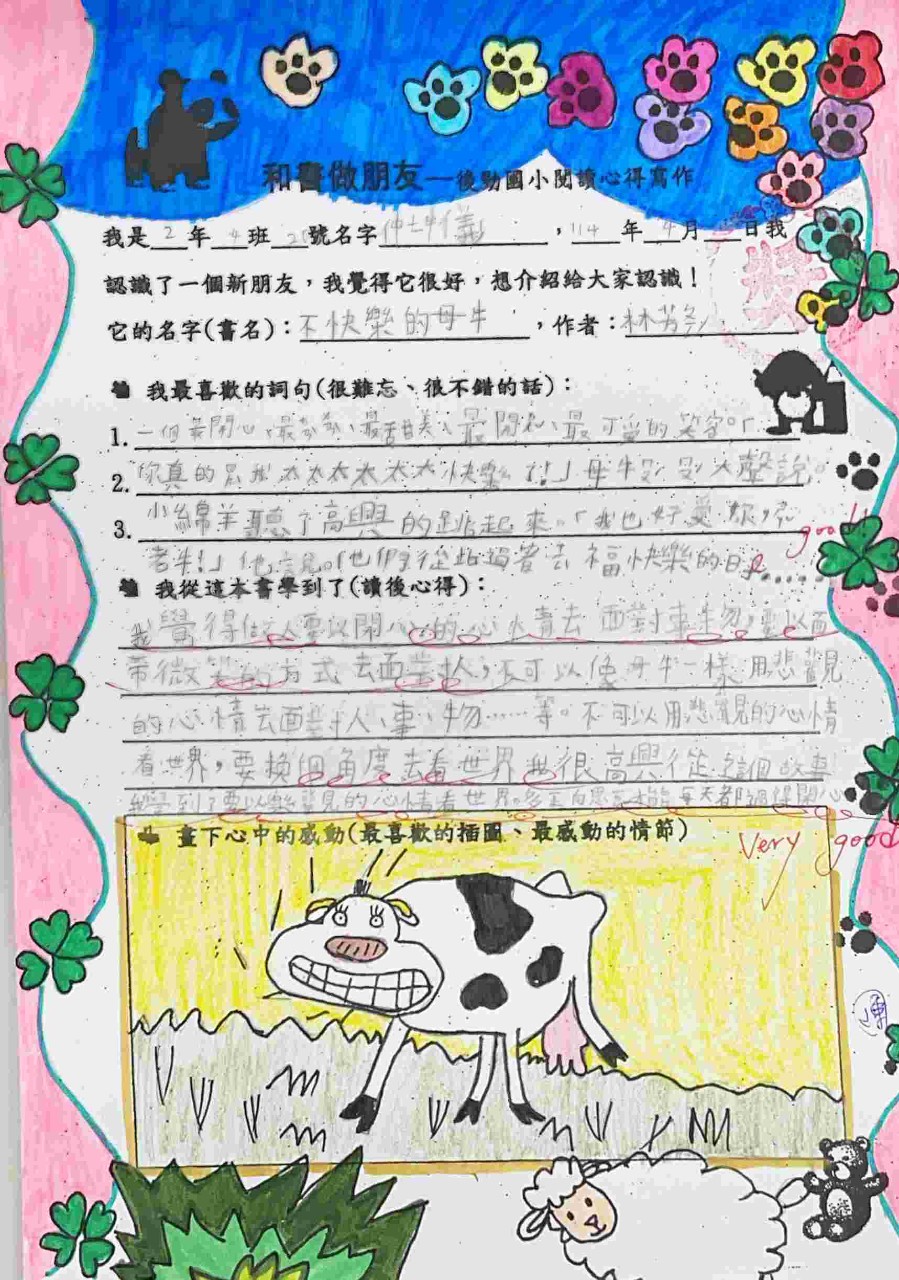 和書做朋友—後勁國小閱讀心得寫作
我是2年4班2號名字儀,114年4月日我
認識了一個新朋友,我覺得它很好,想介紹給大家認識!
它的名字(書名):不快樂的母牛,作者:林芳
我最喜歡的詞句(很難忘、很不錯的話):
1.一個最開心、最、最甜美、最開心、最可愛的笑容。「
2.你真的太太太太太太快樂了!」母牛大聲說。
3.小綿羊聽了高興的跳起來。「我也好愛你,
good!
」他說。他們從此過著幸福快樂的日子......
我從這本書學到了(讀後心得):
我覺得做人要以開心的心情去面對事物,要以面
帶微笑的方式去面對人,不可以像母牛一樣用悲觀
的心情去面對人、事、物……等。不可以用悲觀的心情
看世界,要換個角度去看世界我很高興從這個故事
學到了要以樂觀的心情看世界。多正向思考才能每天都過得開心
畫下心中的感動(最喜歡的插圖、最感動的情節)
Very good